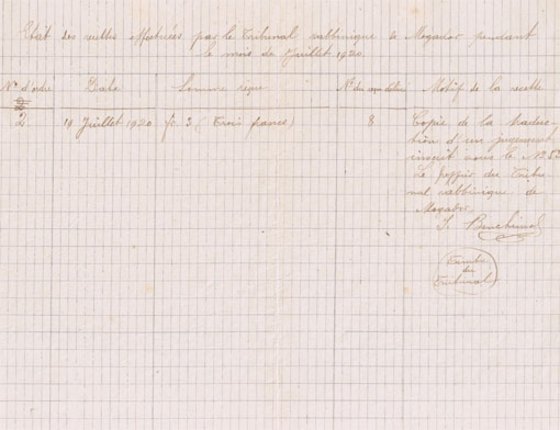 Etat des recettes effectuées par le Tribunal rabbinique de Mogador pendant
le mois de Juillet 1920.
Nos d'ordre Date Somme reçue No du Motif de la recette
2 19 Juillet 1920 fr. 3 (Trois francs) 8 Copie de la traduc-
tion d'un jugement
inscrit sous le No 5
Le greffier du Tribu-
nal rabbinique de
Mogador
S. Benchimol
Timbre
du
Tribunal